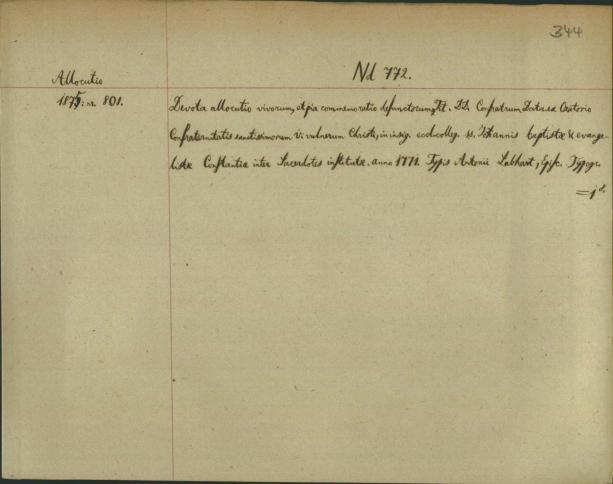 344
Allocutio
Nd 772.
1875: nr. 801.
Devota allocutio vivorum, et pia commemoratio defunctorum Tit. DD. Confratrum, Dicta ex Oratorio
Confraternitatis sanctissimorum V. vulnerum Christi, in insig. eccl. colleg. ss. Johannis baptistæ & evange-
listæ Constantiæ inter Sacerdotes institutæ. anno 1771. Typis Antonii Labhart, Episc. Typogr.